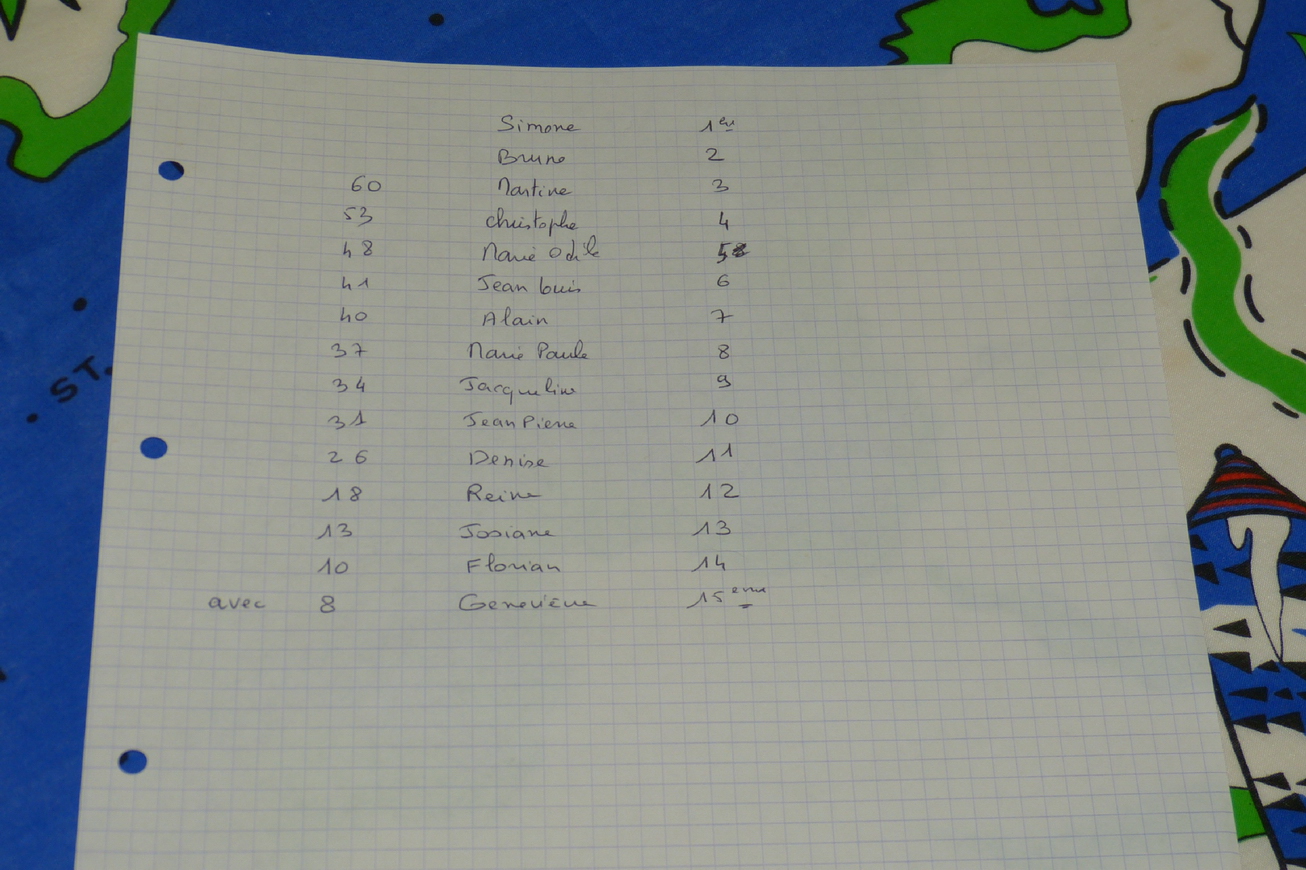 Simone 1er
Bruno 2
60 Martine 3
53 christophe 4
48 Marie Odile 5
41 Jean louis 6
40 Alain 7
37 Marie Paule 8
34 Jacqueline 9
31 Jean Pierre 10
26 Denise 11
18 Reine 12
13 Josiane 13
10 Florian 14
avec 8 Geneviève 15ème
ST.